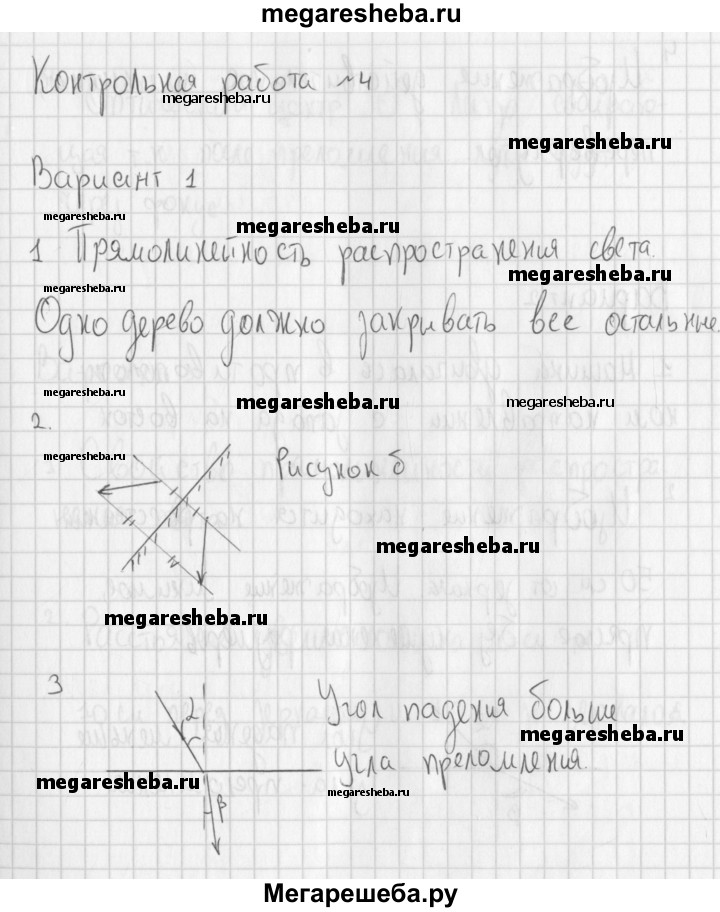 megaresheba.ru
Контрольная работа №4
megaresheba.ru
megaresheba.ru
Вариант 1
megaresheba.ru
megaresheba.ru
1 Прямолинейность распространения света.
megaresheba.ru
Одно дерево должно закривать все остальные.
megaresheba.ru
megaresheba.ru
megaresheba.ru
2.
megaresheba.ru
Рисунок б
megaresheba.ru
megaresheba.ru
3
α
Угол падения больше
megaresheba.ru
угла преломления.
megaresheba.ru
megaresheba.ru
β
Мегарешеба.ру